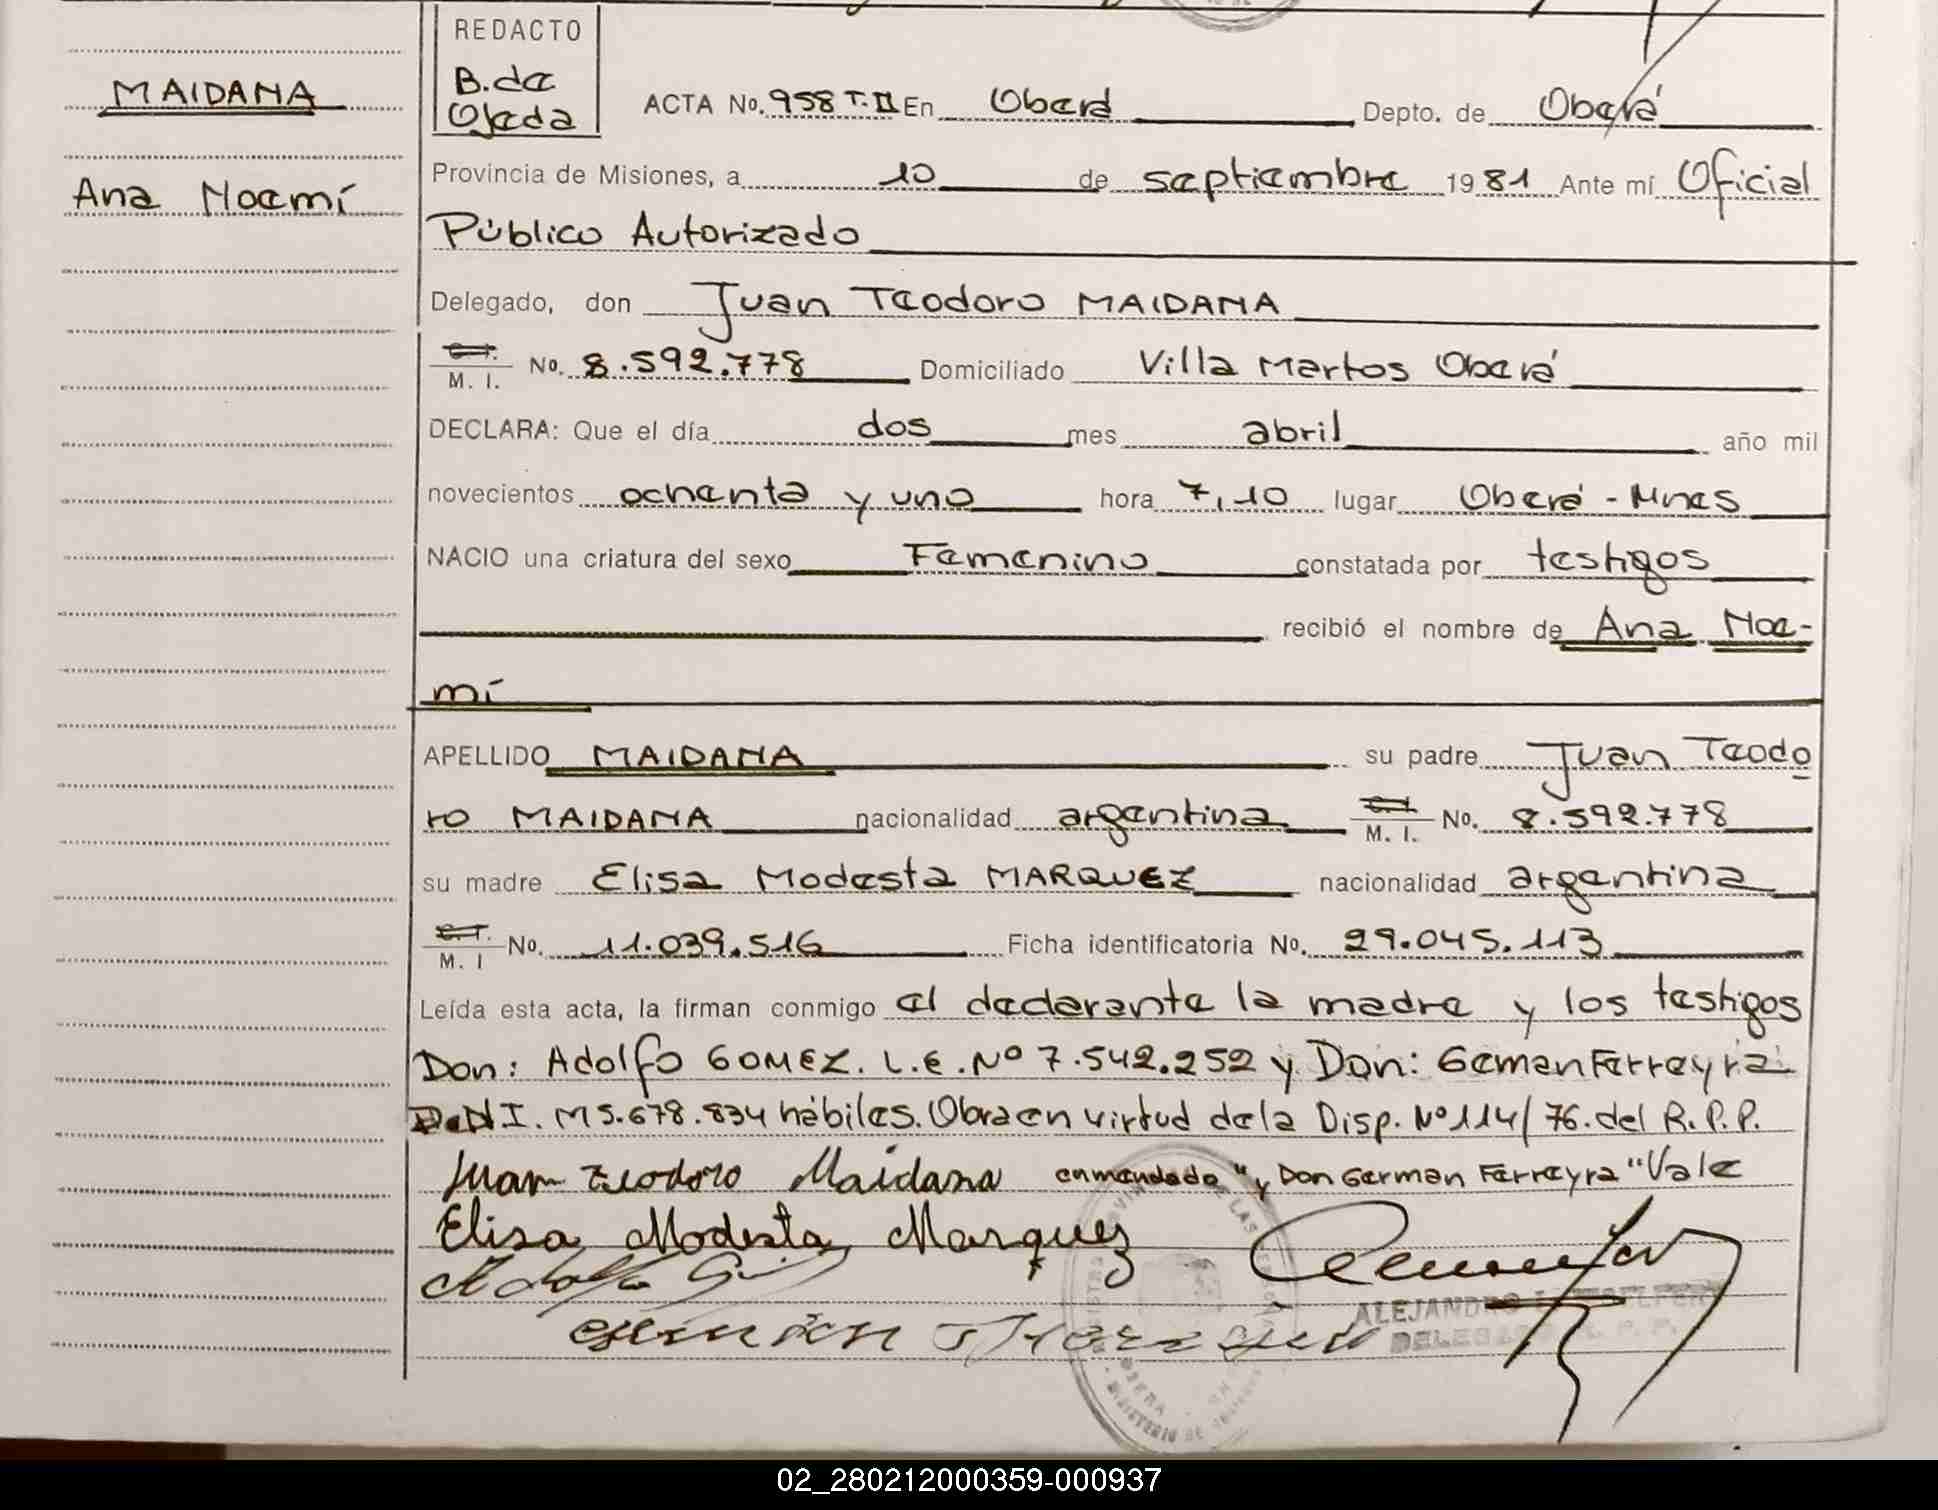 REDACTO
B. de
Ojeda
MAIDANA
Ana Noemí
ACTA No. 958 T. II En Oberá Depto. de Oberá
Provincia de Misiones, a 10 de septiembre 1981 Ante mí Oficial
Público Autorizado
Delegado, don Juan Teodoro MAIDANA
C. I. M. I. No. 8.592.778 Domiciliado Villa Martos Oberá
DECLARA: Que el día dos mes abril año mil
novecientos ochenta y uno hora 7,10 lugar Oberá - Mnes
NACIO una criatura del sexo Femenino constatada por testigos
recibió el nombre de Ana Noe-
mí
APELLIDO MAIDANA su padre Juan Teodo
ro MAIDANA nacionalidad argentina C. I. M. I. No. 8.592.778
su madre Elisa Modesta MARQUEZ nacionalidad argentina
C. I. M. I No. 11.039.516 Ficha identificatoria No. 29.045.113
Leída esta acta, la firman conmigo el declarante la madre y los testigos
Don: Adolfo GOMEZ. L.E. Nº 7.542.252 y Don: German Ferreyra
D.N.I. M 5.678.834 hábiles. Obra en virtud de la Disp. Nº 114/76. del R.P.P.
Juan Teodoro Maidana enmendado "y Don German Ferreyra" Vale
Elisa Modesta Marquez
Adolfo
ALEJANDRO
DELEGADO R. P. P.
02_280212000359-000937